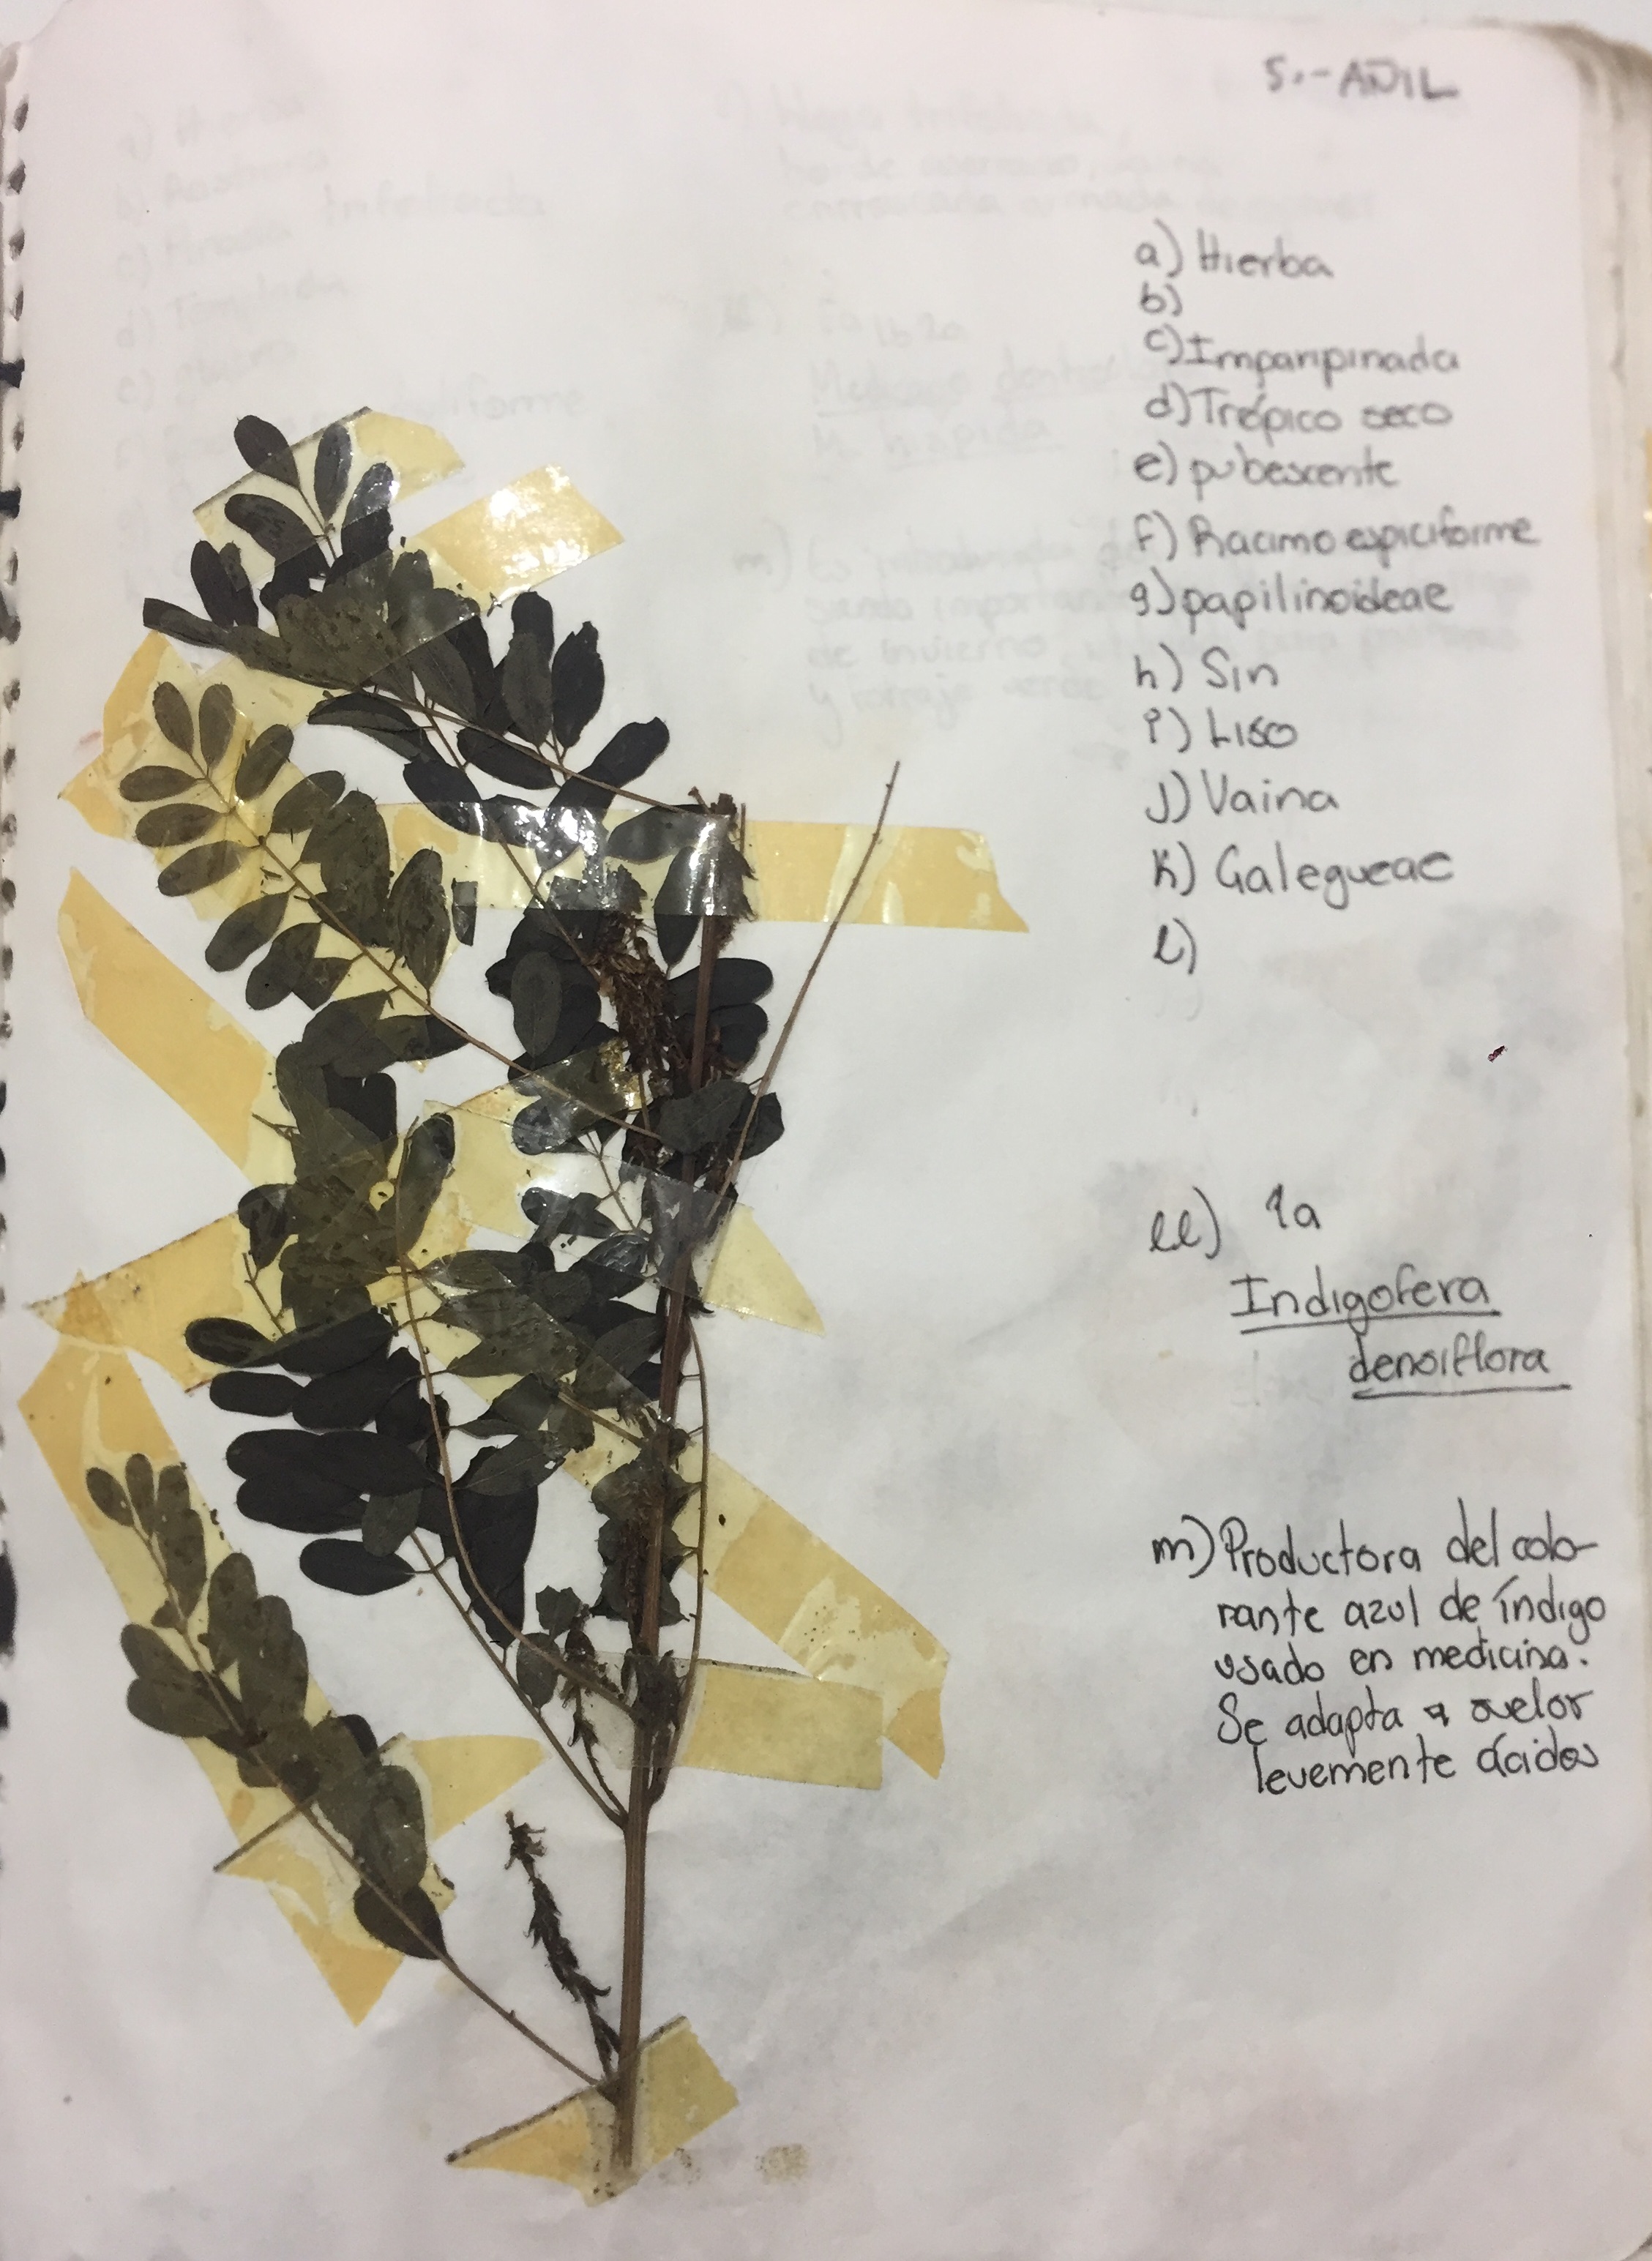 5.- AÑIL
a) Hierba
b)
c) Imparipinada
d) Trópico seco
e) pubescente
f) Racimo espiciforme
g) papilinoideae
h) Sin
i) Liso
j) Vaina
k) Galegueae
l)
ll) 1a
Indigofera
densiflora
m) Productora del colo-
rante azul de índigo
usado en medicina.
Se adapta a
levemente ácidos